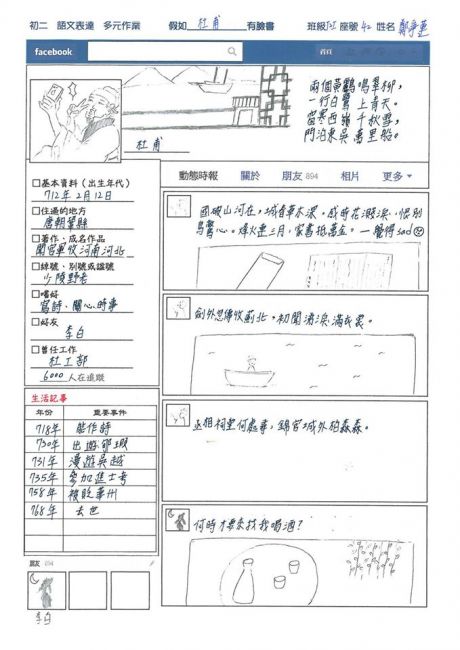 初二 語文表達 多元作業 假如 杜甫 有臉書 班級 座號 42 姓名
facebook
首頁
兩個黃鸝鳴翠柳，
一行白鷺上青天。
窗寒西嶺千秋雪，
門泊東吳萬里船。
杜甫
動態時報 關於 朋友 894 相片 更多
□基本資料（出生年代）
712年2月12日
□住過的地方
唐朝鞏縣
□著作、成名作品
聞官軍收河南河北
□綽號、別號或謚號
少陵野老
□嗜好
寫詩、關心時事
□好友
李白
□曾任工作
杜工部
6000 人在追蹤
生活記事
年份 重要事件
718年 能作詩
730年 出遊郇瑕
731年 漫遊吳越
735年 參加進士考
758年 被貶華州
768年 去世
朋友 894
李白
國破山河在，城春草木深。感時花濺淚，恨別
鳥驚心。烽火三月，家書抵萬金。—覺得sad
劍外忽傳收薊北，初聞涕淚滿衣裳。
丞相祠堂何處尋，錦官城外柏森森。
何時才要來找我喝酒？